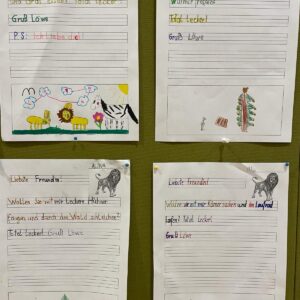 total lecker
Gruß Löwe
PS: Ich liebe dich!
Total Lecker!
Gruß Löwe
Liebste Freundin!
Wollen Sie mit mir leckere Hühner
fangen und durch den Wald schleichen?
Total Lecker! Gruß Löwe
Liebste Freundin!
Wollen sie mit mir
laufen? Total Lecker!
Gruß Löwe